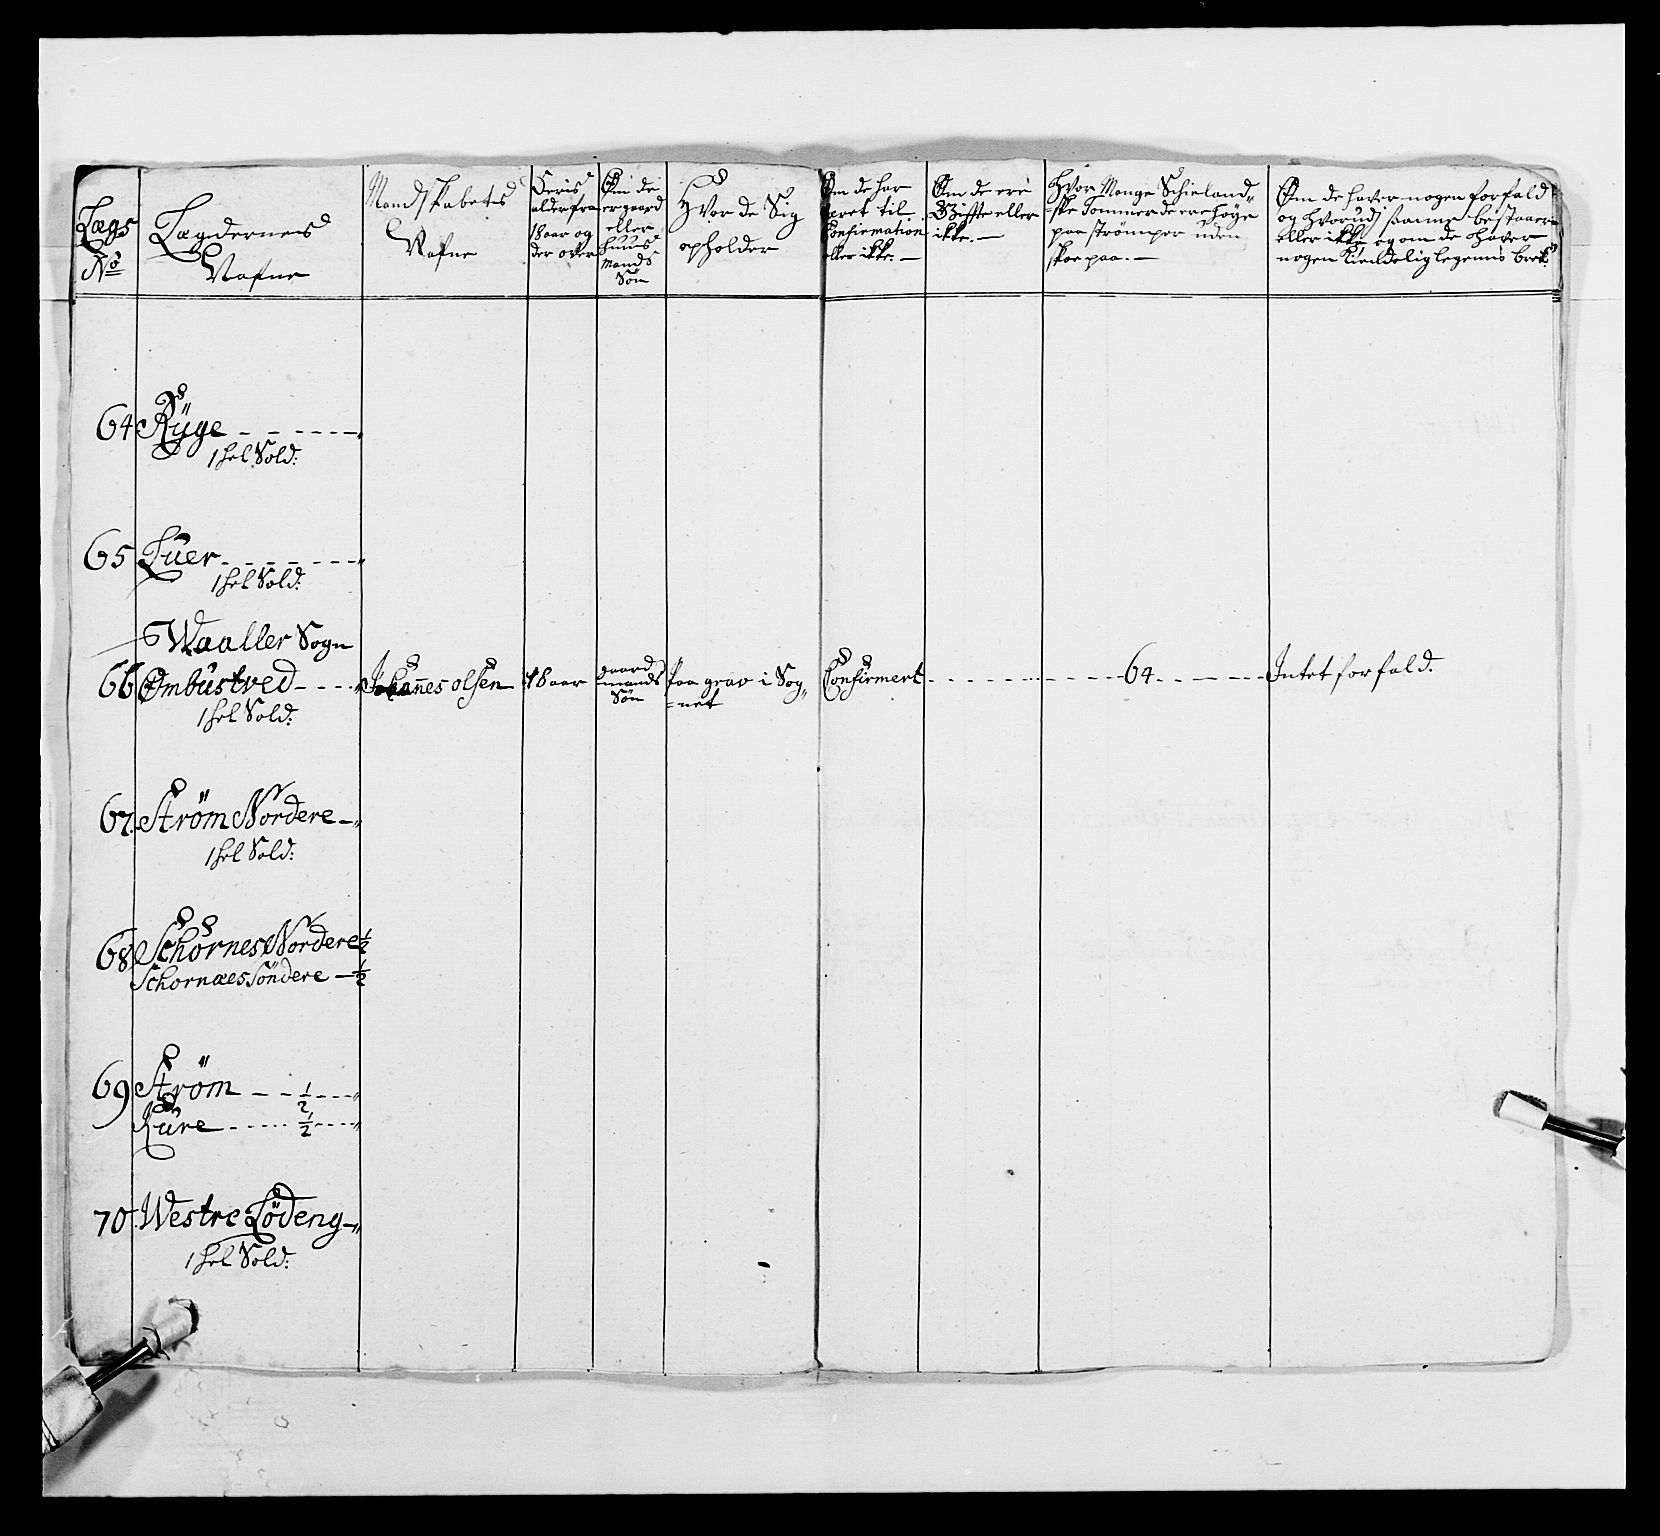 Lægs
No
Lægdernes
Nafne
Mandskabets
Nafne
Deris
alder fra
18 aar og
der over
Om de
er gaard
eller
huus
Mands
Søn
Hvor de Sig
opholder
Om de har
været til
Confirmation
eller ikke. —
Om de ere
Gifte eller
ikke. —
Hvor Mange Schieland-
=ske Tommer de ere høye
paa strømper uden
skoe paa. —
Om de haver nogen forfald
og hvorudj samme bestaaer
eller ikke, og om de haver
nogen Kiendelig legems bræk.
64 Rÿge
1 hel Sold:
65 Luer
1 hel Sold:
Waaller Sogn
66 Ombustved Johannes olsen 18 aar gaard mands Søn Paa grav i Sog=net Confirmert 64 Intet forfald.
1 hel Sold:
67. Strøm Nordere
1 hel Sold:
68 Schornes Nordere 1/2
Schornæes Søndere — 1/2
69 Strøm 1/2
Kure 1/2
70. Westre Lødeng
1 hel Sold: